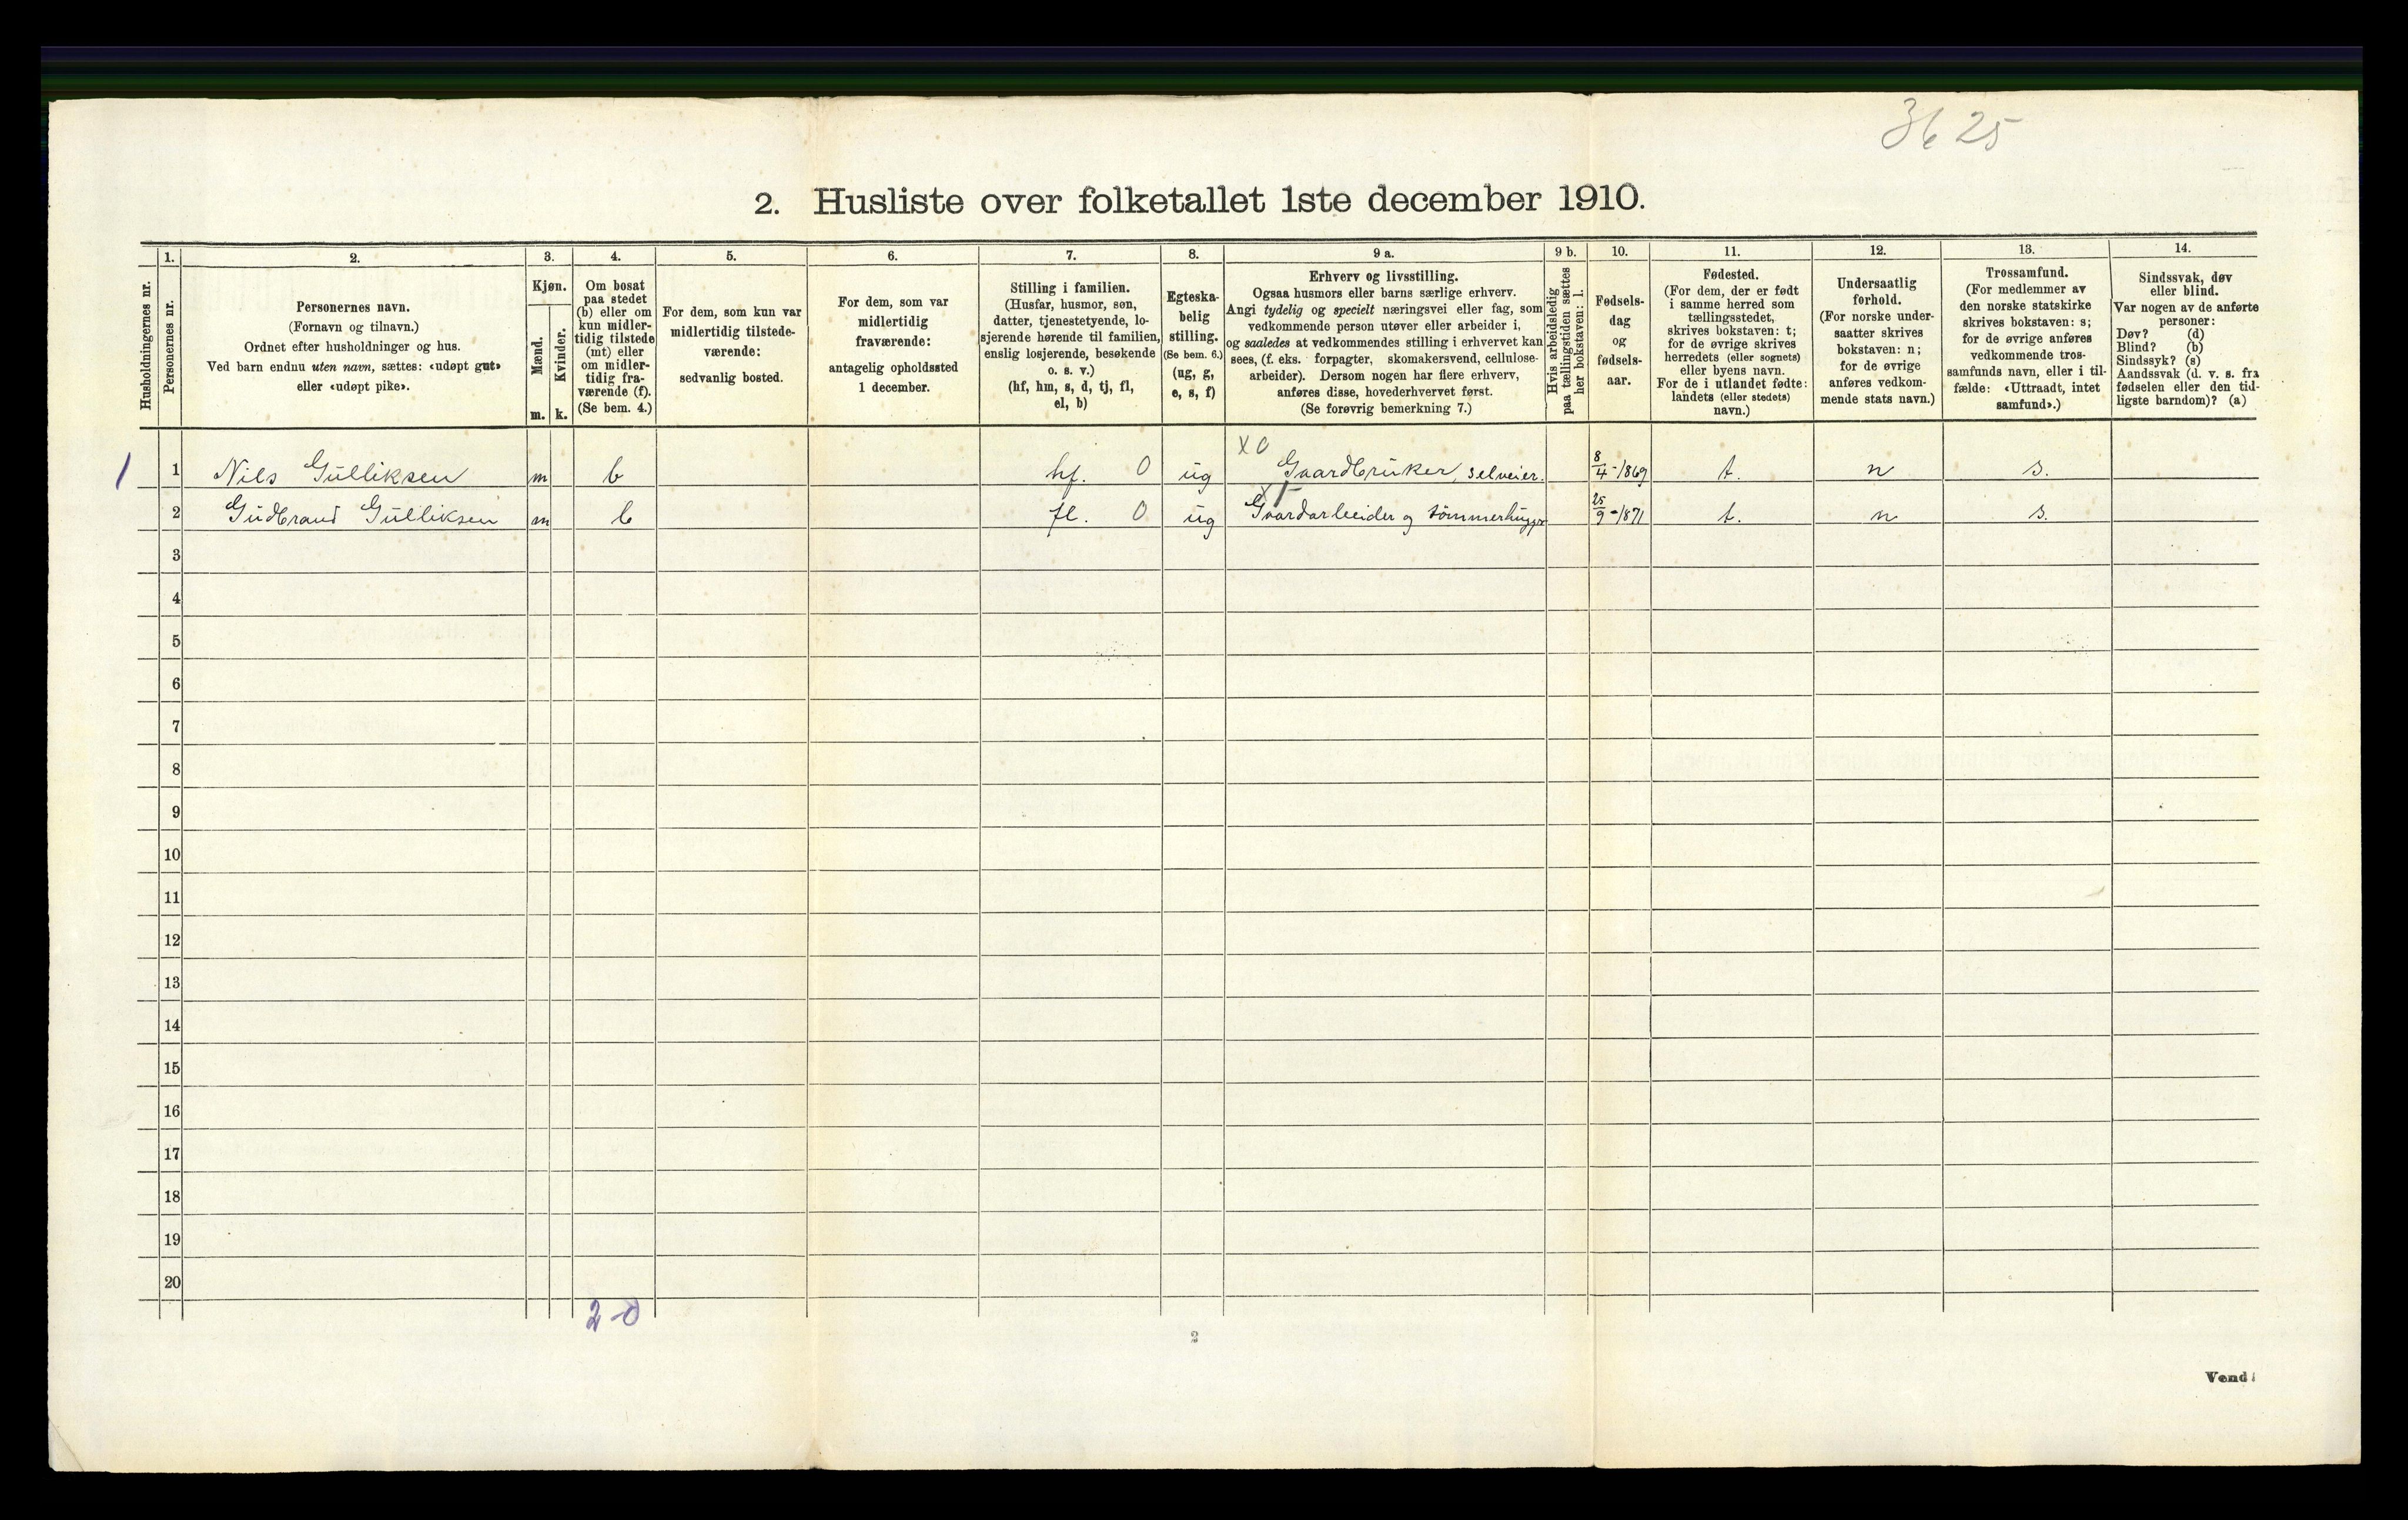 3625
2. Husliste over folketallet 1ste december 1910.
Husholdningernes nr.
1.
Personernes nr.
2.
Personernes navn.
(Fornavn og tilnavn.)
Ordnet efter husholdninger og hus.
Ved barn endnu uten navn, sættes: «udøpt gut»
eller «udøpt pike».
3.
Kjøn.
Mænd.
m.
Kvinder.
k.
4.
Om bosat
paa stedet
(b) eller om
kun midler-
tidig tilstede
(mt) eller
om midler-
tidig fra-
værende (f).
(Se bem. 4.)
5.
For dem, som kun var
midlertidig tilstede-
værende:
sedvanlig bosted.
6.
For dem, som var
midlertidig
fraværende:
antagelig opholdssted
1 december.
7.
Stilling i familien.
(Husfar, husmor, søn,
datter, tjenestetyende, lo-
sjerende hørende til familien,
enslig losjerende, besøkende
o. s. v.)
(hf, hm, s, d, tj, fl,
el, b)
8.
Egteska-
belig
stilling.
(Se bem. 6.)
(ug, g,
e, s, f)
9 a.
Erhverv og livsstilling.
Ogsaa husmors eller barns særlige erhverv.
Angi tydelig og specielt næringsvei eller fag, som
vedkommende person utøver eller arbeider i,
og saaledes at vedkommendes stilling i erhvervet kan
sees, (f. eks. forpagter, skomakersvend, cellulose-
arbeider). Dersom nogen har flere erhverv,
anføres disse, hovederhvervet først.
(Se forøvrig bemerkning 7.)
9 b.
Hvis arbeidsledig
paa tællingstiden sættes
her bokstaven: l.
10.
Fødsels-
dag
og
fødsels-
aar.
11.
Fødested.
(For dem, der er født
i samme herred som
tællingsstedet,
skrives bokstaven: t;
for de øvrige skrives
herredets (eller sognets)
eller byens navn.
For de i utlandet fødte:
landets (eller stedets)
navn.)
12.
Undersaatlig
forhold.
(For norske under-
saatter skrives
bokstaven: n;
for de øvrige
anføres vedkom-
mende stats navn.)
13.
Trossamfund.
(For medlemmer av
den norske statskirke
skrives bokstaven: s;
for de øvrige anføres
vedkommende tros-
samfunds navn, eller i til-
fælde: «Uttraadt, intet
samfund».)
14.
Sindssvak, døv
eller blind.
Var nogen av de anførte
personer:
Døv? (d)
Blind? (b)
Sindssyk? (s)
Aandssvak (d. v. s. fra
fødselen eller den tid-
ligste barndom)? (a)
X 0
1 1 Nils Gulliksen m b hf. 0 ug Gaardbruker, selveier. 8/4-1869 t. n s.
2 Gudbrand Gulliksen m b fl. 0 ug Gaardarbeider og tömmerhugger 25/9-1871 t. n s.
3
4
5
6
7
8
9
10
11
12
13
14
15
16
17
18
19
20
2-0
2
Vend!